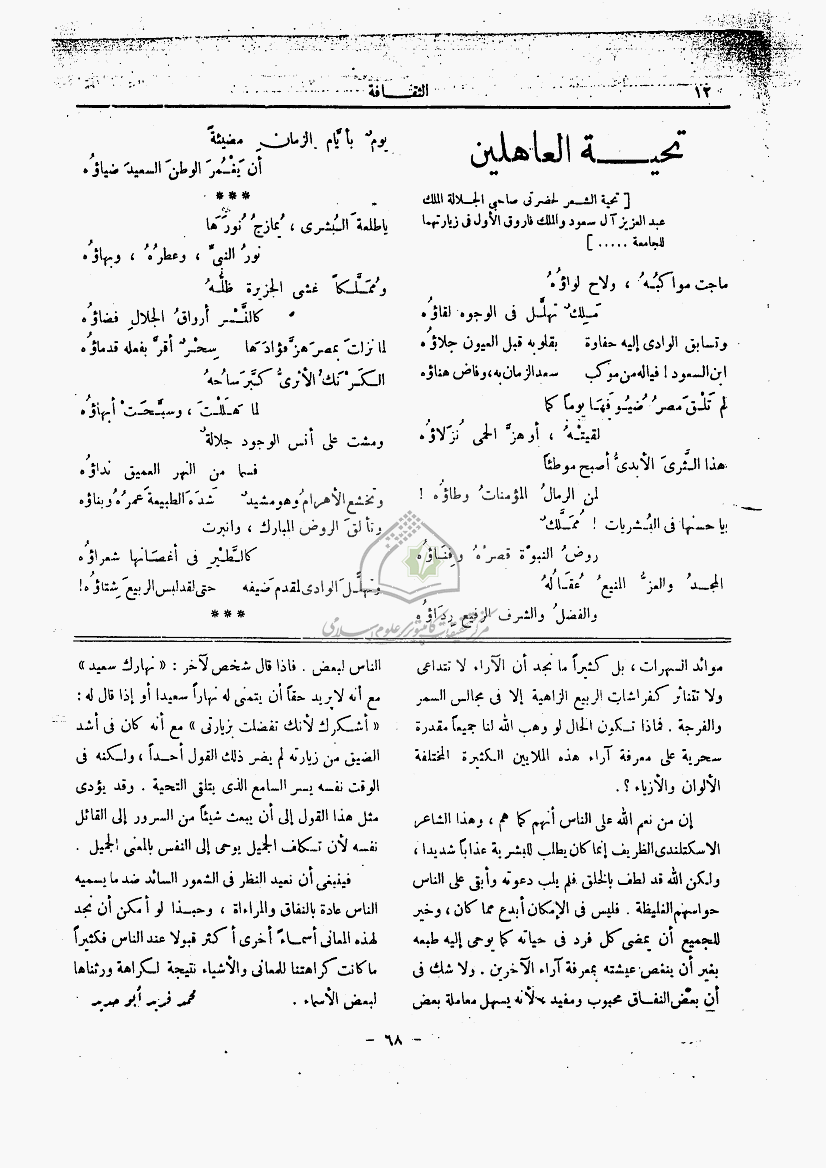 ١٢
الثقافة
تحية العاهلين
[ تحية الشعر لحضرتى صاحبي الجلالة الملك
عبد العزيز آل سعود والملك فاروق الأول فى زيارتهما
للجامعة ..... ]
ماجت مواكبُهُ ، ولاح لواؤهُ
مَلِكٌ تهلَّل فى الوجوه لقاؤه
وتسابق الوادى إليه حفاوة بقلوبه قبل العيون جلاؤه
ابن السعود ! فياله من موكب سعد الزمان به، وفاض هناؤه
لم تَلْقَ مصرُ ضُيُوفَهَا يوماً كما
لقيتْهُ ، أو هزَّ الحمى نُزَلاؤه
هذا الثَّرىَ الأبدىُّ أصبح موطئاً
لمن الرمالُ المؤمنات وطاؤه !
يا حسنها فى البُشريات ! مُمَلَّكٌ
روضُ النبوة قصرُهُ وفِنَاؤه
المجدُ والعزُّ المنيعُ عُقَالُهُ
والفضلُ والشرف الرفيع رِدَاؤه
يومٌ بأيَّام الزمان مضيئةً
أن يَغْمُرَ الوطن السعيدَ ضياؤه
***
يا طلعةَ البُشرى ، يُمازجُ نُورَهَا
نورُ النبيِّ ، وعطرُهُ ، وبهاؤه
ومُمَلَّكاً غشى الجزيرة ظلُّهُ
كالنَّسْر أرواقُ الجلالِ فضاؤه
لما نزلتَ بمصر هزَّ فؤادَها سِحْرٌ أقرَّ بفعله قدماؤه
الكَرْنَكُ الأثرىُّ كَبَّرَ ساحُهُ
لما هَلَلْتَ ، وسبَّحَتْ أبهاؤه
ومشت على أنس الوجود جلالةٌ
فسما من النهر العميق نداؤه
وتخشع الأهرام وهو مشيدٌ شَدَهَ الطبيعةَ عمرُهُ وبناؤه
وتألق الروض المبارك ، وانبرت
كالطَّيْر فى أغصانها شعراؤه
وتهلَّل الوادى لمقدم ضيفه حتى لقد لبس الربيعَ شِتاؤه!
***
موائد السهرات ، بل كثيراً ما نجد أن الآراء لا تتداعى
ولا تتناثر كفراشات الربيع الزاهية إلا فى مجالس السمر
والفرجة . فماذا تكون الحال لو وهب الله لنا جميعاً مقدرة
سحرية على معرفة آراء هذه الملايين الكثيرة المختلفة
الألوان والأزياء ؟ .
إن من نعم الله على الناس أنهم كما هم ، وهذا الشاعر
الاسكتلندى الظريف إنما كان يطلب للبشرية عذاباً شديدا ،
ولكن الله قد لطف بالخلق فلم يلب دعوته وأبقى على الناس
حواسهم الغليظة . فليس فى الإمكان أبدع مما كان ، وخير
للجميع أن يمضى كل فرد فى حياته كما يوحى إليه طبعه
بغير أن ينغص عيشته بمعرفة آراء الآخرين . ولا شك فى
أن بعض النفاق محبوب ومفيد لأنه يسهل معاملة بعض
الناس لبعض . فاذا قال شخص لآخر : « نهارك سعيد »
مع أنه لا يريد حقاً أن يتمنى له نهاراً سعيدا أو إذا قال له :
« أشكرك لأنك تفضلت بزيارتى » مع أنه كان فى أشد
الضيق من زيارته لم يضر ذلك القول أحداً ، ولكنه فى
الوقت نفسه يسر السامع الذى يتلقى التحية . وقد يؤدى
مثل هذا القول إلى أن يبعث شيئاً من السرور إلى القائل
نفسه لأن تكلف الجميل يوحى إلى النفس بالمعنى الجميل .
فينبغى أن نعيد النظر فى الشعور السائد ضد ما يسميه
الناس عادة بالنفاق والمراءاة ، وحبذا لو أمكن أن نجد
لهذه المعانى أسماءً أخرى أكثر قبولا عند الناس فكثيراً
ما كانت كراهتنا للمعانى والأشياء نتيجة لكراهة ورثناها
لبعض الأسماء .
محمد فريد أبو حديد
مركز تحقيقات كامپيوترى علوم اسلامى
- ٦٨ -